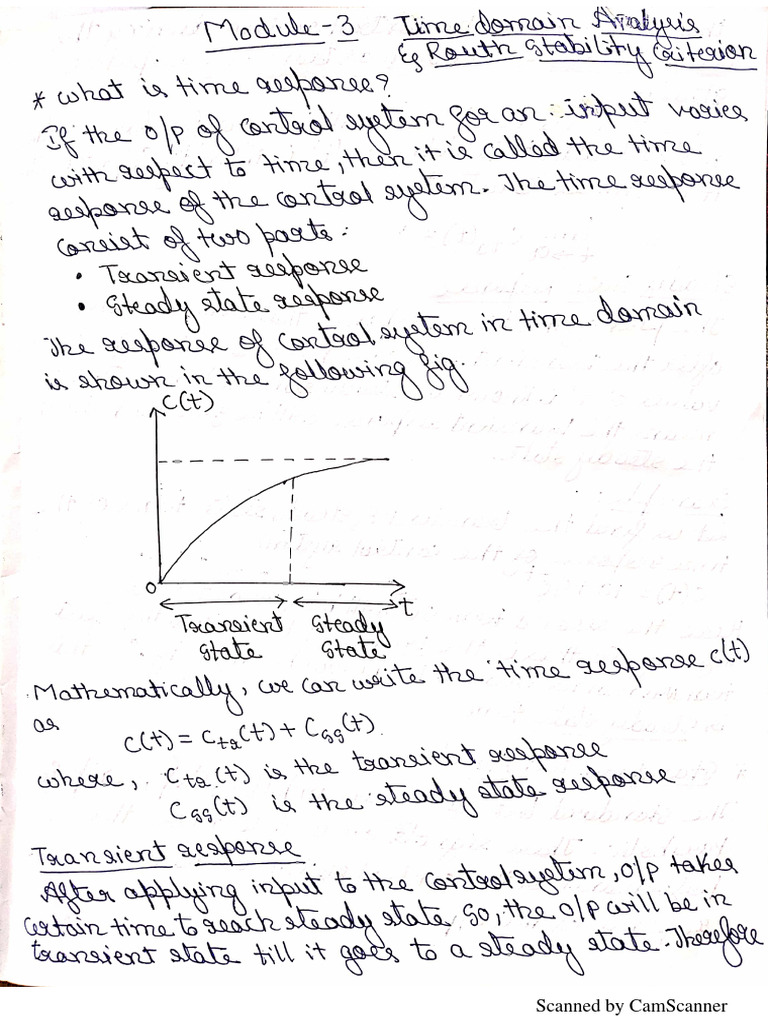 Module-3 Time domain Analysis
& Routh Stability Criterion
* What is time response?
If the o/p of control system for an input varies
with respect to time, then it is called the time
response of the control system. The time response
consist of two parts.
• Transient response
• Steady state response
The response of control system in time domain
is shown in the following fig.
C(t)
0
t
Transient Steady
State State
Mathematically, we can write the time response c(t)
as
C(t) = Ctr(t) + Css(t)
where, Ctr(t) is the transient response
Css(t) is the steady state response
Transient response
After applying input to the control system, o/p takes
certain time to reach steady state. So, the o/p will be in
transient state till it goes to a steady state. Therefore
Scanned by CamScanner